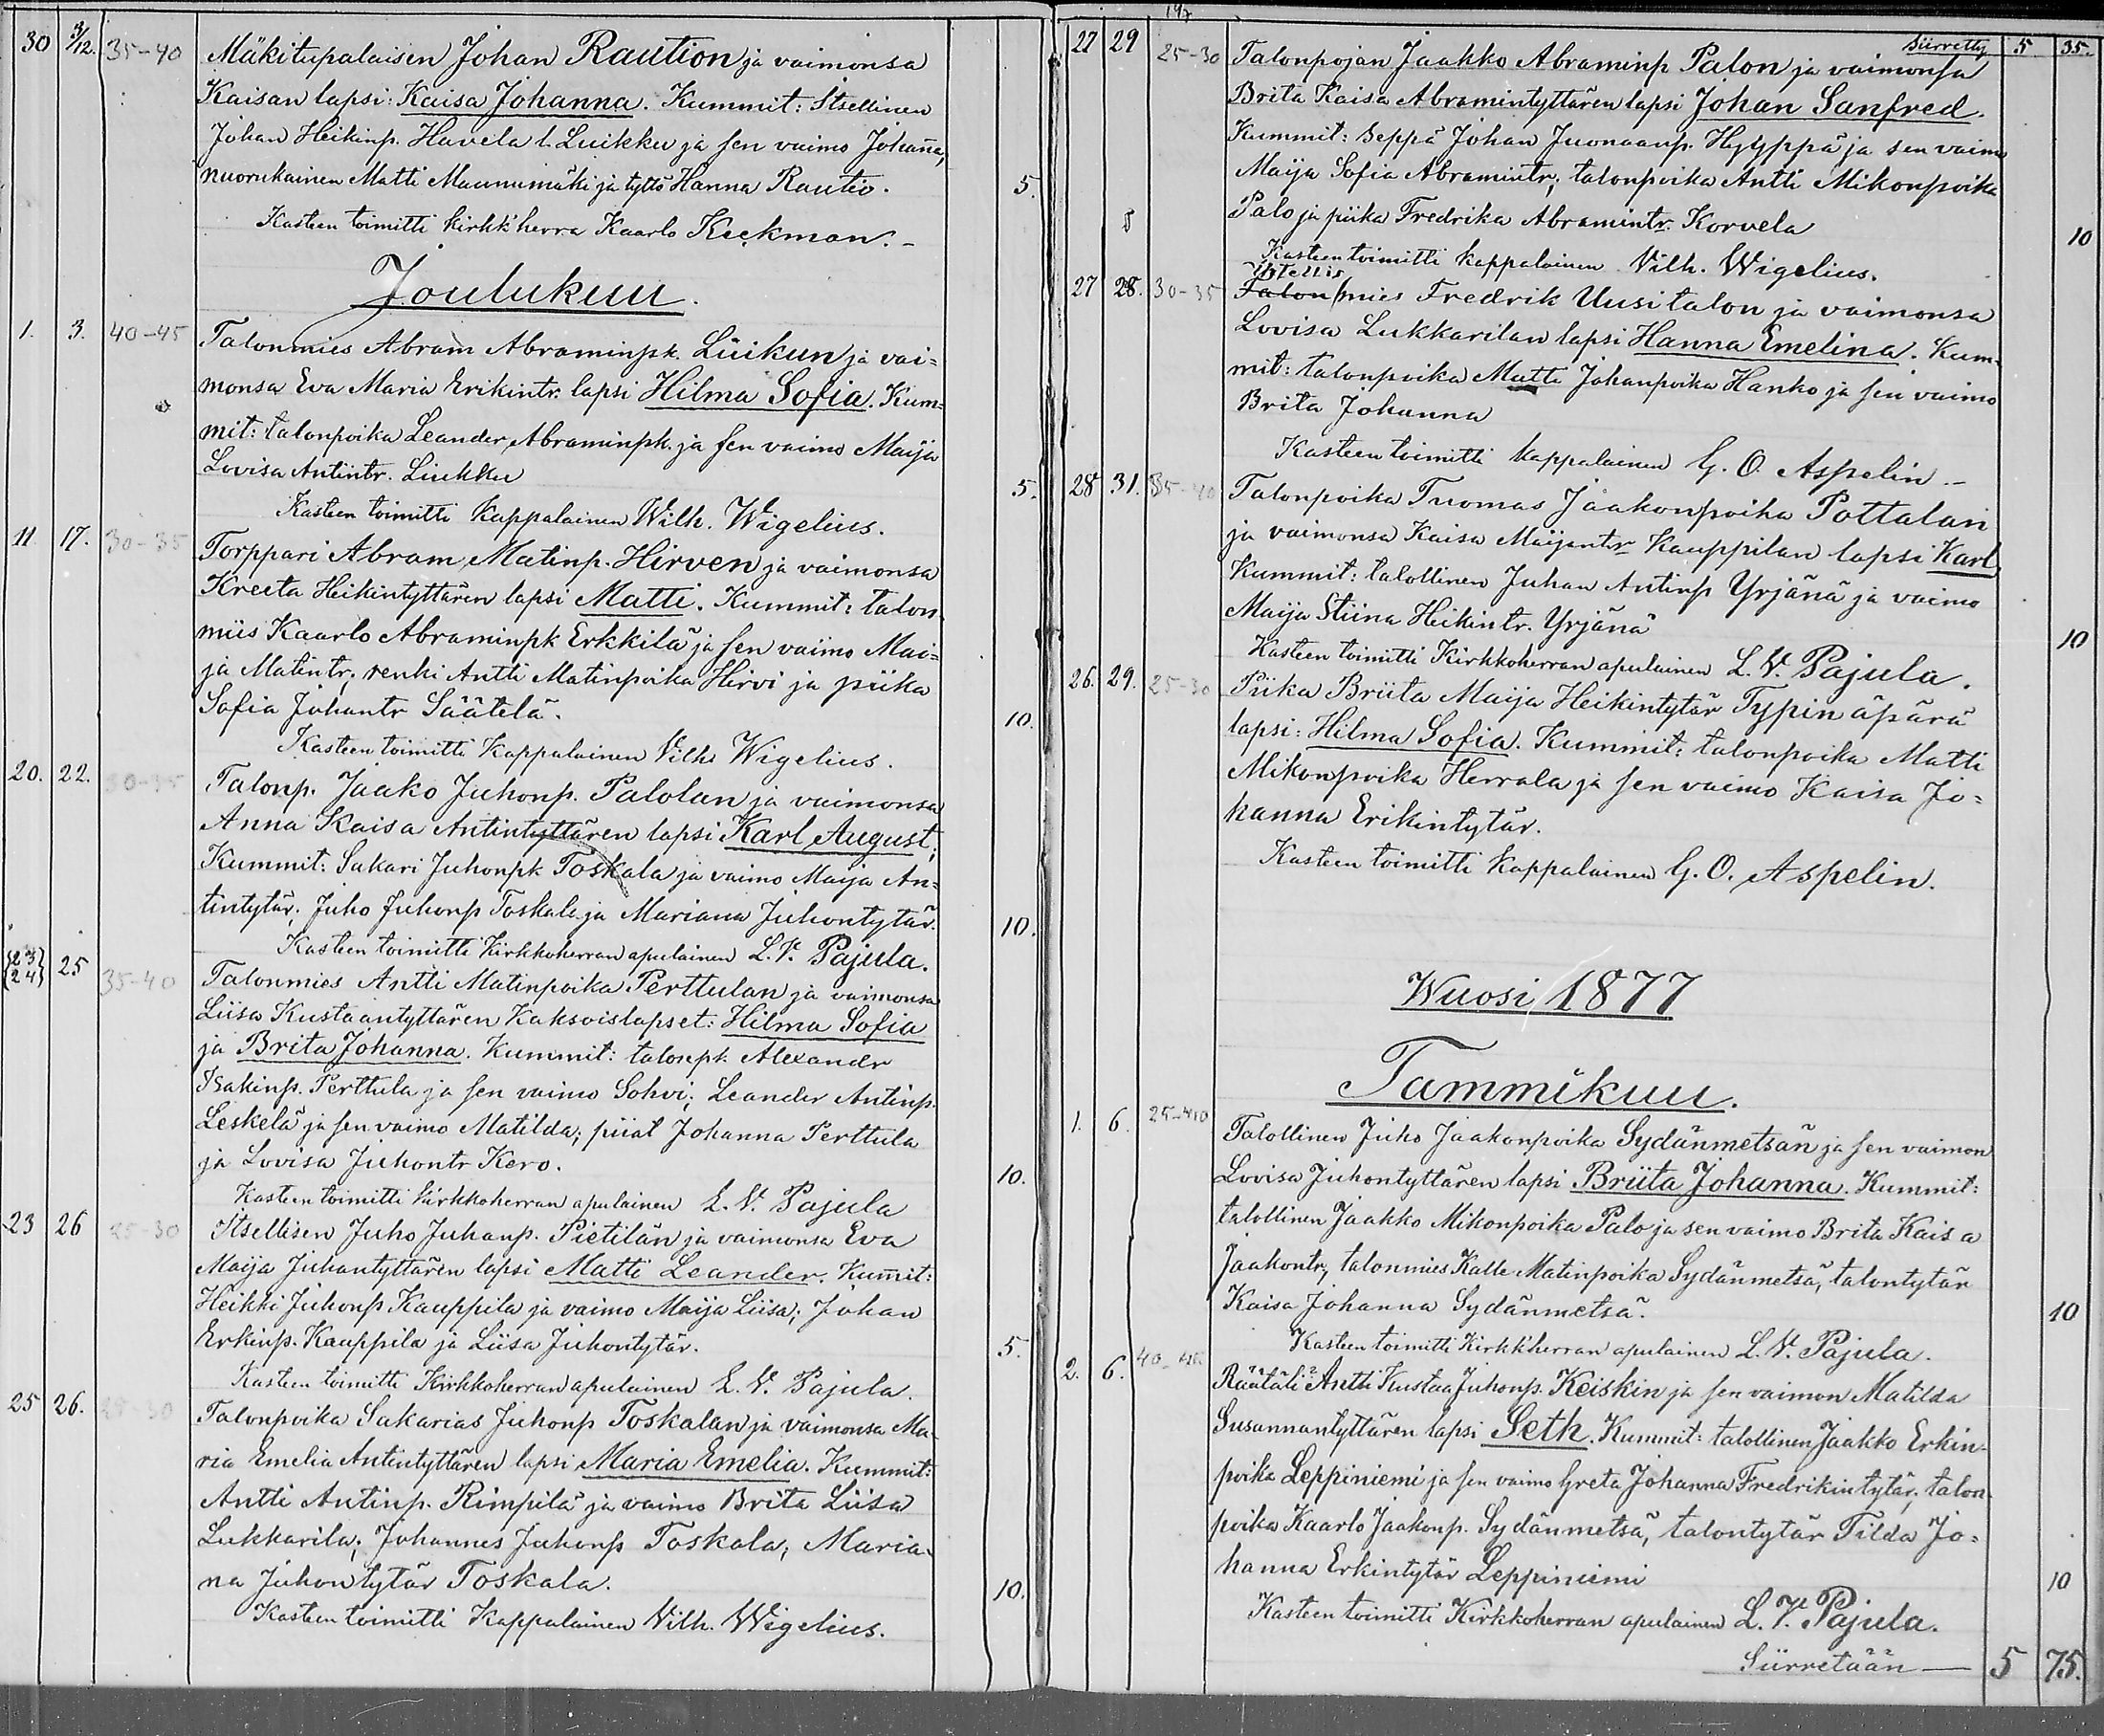 30 3/12. 35-40 Mäkitupalaisen Johan Raution ja vaimonsa
Kaisan lapsi: Kaisa Johanna. Kummit: Itsellinen
Johan Heikinp. Havela l. Luikku ja sen vaimo Johanna,
nuorukainen Matti Maunumäki ja tyttö Hanna Rautio. 5.
Kasteen toimitti kirkk'herra Kaarlo Keckman. -
Joulukuu.
1. 3. 40-45 Talonmies Abram Abraminpk. Liikun ja vai=
monsa Eva Maria Erikintr. lapsi Hilma Sofia. Kum=
mit: talonpoika Leander Abraminpk. ja sen vaimo Maija
Lovisa Antintr. Liukku 5.
Kasteen toimitti Kappalainen Wilh. Wigelius.
11. 17. 30-35 Torppari Abram Matinp. Hirven ja vaimonsa
Kreeta Heikintyttären lapsi Matti. Kummit: talon
miis Kaarlo Abraminpk Erkkilä ja sen vaimo Mai=
ja Matintr, renki Antti Matinpoika Hirvi ja piika
Sofia Johantr Säätelä. 10.
Kasteen toimitti Kappalainen Vilh. Wigelius.
20. 22. 30-35 Talonp. Jaako Juhonp. Palolan ja vaimonsa
Anna Kaisa Antintyttären lapsi Karl August;
Kummit: Sakari Juhonpk Toskala ja vaimo Maija An=
tintytär, Juho Juhonp Toskala ja Mariana Juhontytär. 10.
Kasteen toimitti Kirkkoherran apulainen L. V. Pajula.
{23} {24} 25 35-40 Talonmies Antti Matinpoika Perttulan ja vaimonsa
Liisa Kustaantyttären Kaksoislapset: Hilma Sofia
ja Brita Johanna. Kummit: talonpk. Alexandr
Isakinp. Perttula ja sen vaimo Sohvi; Leander Antinp.
Leskelä ja sen vaimo Matilda; piiat Johanna Perttula
ja Lovisa Juhontr Kero. 10.
Kasteen toimitti Kirkkoherran apulainen L. V. Pajula
23 26 25-30 Itsellisen Juho Juhanp. Pietilän ja vaimonsa Eva
Maija Juhantyttären lapsi Matti Leander. Kummit:
Heikki Juhonp Kauppila ja vaimo Maija Liisa; Johan
Erkinp. Kauppila ja Liisa Juhontytär. 5.
Kasteen toimitti Kirkkoherran apulainen L. V. Pajula.
25 26. 25-30 Talonpoika Sakarias Juhonp Toskalan ja vaimonsa Ma-
ria Emelia Antintyttären lapsi Maria Emelia. Kummit:
Antti Antinp. Rimpilä ja vaimo Brita Liisa
Lukkarila; Johannes Juhonp Toskala, Maria-
na Juhontytär Toskala. 10.
Kasteen toimitti Kappalainen Vilh. Wigelius.
197
Siirretty 5 35.
27 29 25-30 Talonpojan Jaakko Abraminp Palon ja vaimonsa
Brita Kaisa Abramintyttären lapsi Johan Sanfred.
Kummit: Seppä Johan Juonaanp. Hyyppä ja sen vaimo
Maija Sofia Abramintr, talonpoika Antti Mikonpoika
Palo ja piika Fredrika Abramintr. Korvela 10
Kasteen toimitti kappalainen Vilh. Wigelius.
Itsellis
27 28. 30-35 Talonmies Fredrik Uusitalon ja vaimonsa
Lovisa Lukkarilan lapsi Hanna Emelina. Kum-
mit: talonpoika Matti Johanpoika Hanko ja sen vaimo
Brita Johanna
Kasteen toimitti kappalainen G. O. Aspelin. -
28 31. 35-40 Talonpoika Tuomas Jaakonpoika Pottalan
ja vaimonsa Kaisa Maijantr Kauppilan lapsi Karl
Kummit: talollinen Juhan Antinp Yrjänä ja vaimo
Maija Stiina Heikintr. Yrjänä 10
Kasteen toimitti Kirkkoherran apulainen L. V. Pajula.
26. 29. 25-30 Piika Briita Maija Heikintytär Typin äpärä
lapsi: Hilma Sofia. Kummit: talonpoika Matti
Mikonpoika Herrala ja sen vaimo Kaisa Jo=
hanna Erikintytär.
Kasteen toimitti kappalainen G. O. Aspelin.
Wuosi 1877
Tammikuu.
1. 6. 25-40 Talollinen Juho Jaakonpoika Sydänmetsän ja sen vaimon
Lovisa Juhontyttären lapsi Briita Johanna. Kummit:
talollinen Jaakko Mikonpoika Palo ja sen vaimo Brita Kaisa
Jaakontr, talonmies Kalle Matinpoika Sydänmetsä, talontytär
Kaisa Johanna Sydänmetsä. 10
Kasteen toimitti Kirkk'herran apulainen L. V. Pajula.
2. 6. Räätäli Antti Kustaa Juhonp. Keiskin ja sen vaimon Matilda
Susannantyttären lapsi Seth. Kummit: talollinen Jaakko Erkin-
poika Leppiniemi ja sen vaimo Greta Johanna Fredrikintytär, talon
poika Kaarlo Jaakonp. Sydänmetsä, talontytär Tilda Jo=
hanna Erkintytär Leppiniemi 10
Kasteen toimitti Kirkkoherran apulainen L. V. Pajula.
Siirretään — 5 75.